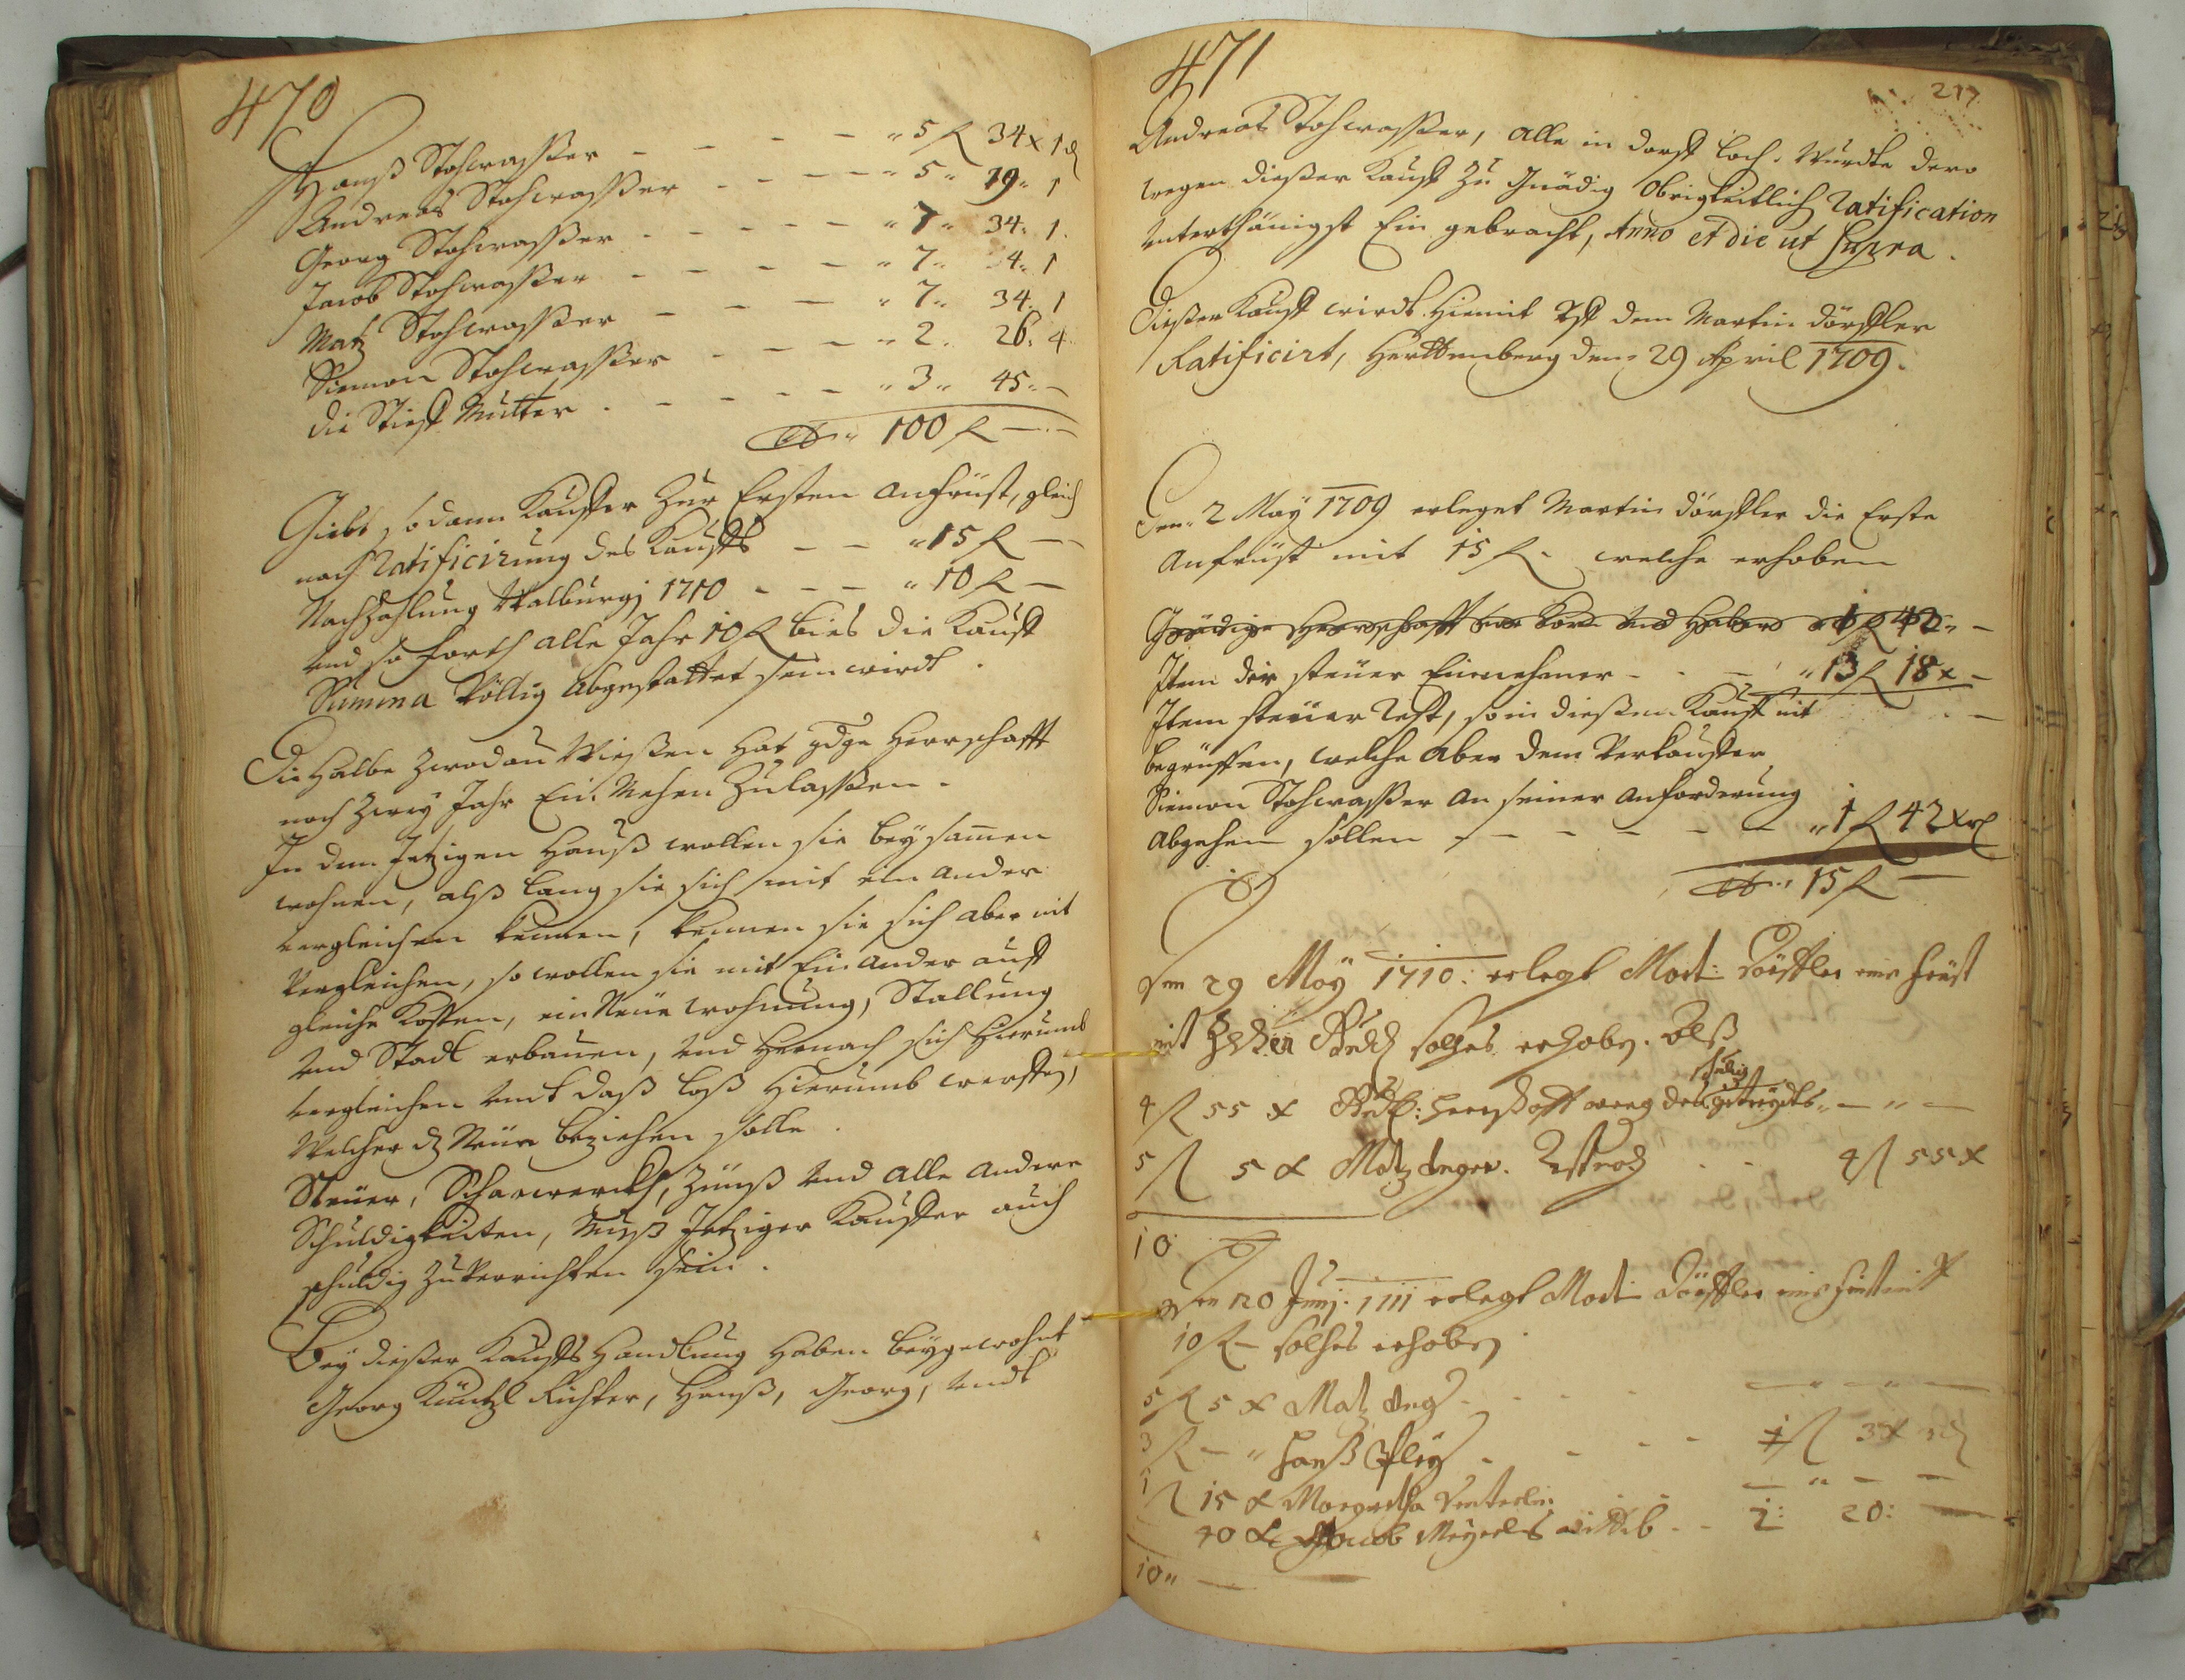 470
Hanß Stohwasser - - - - " 5 fl 34 x 1 d
Andreas Stohwasser - - - - " 5 " 19 " 1
Georg Stohwasser - - - - " 7 " 34 " 1
Jacob Stohwasser - - - - " 7 " 34 " 1
Matz Stohwasser - - - " 7 " 34 " 1
Siemon Stohwasser - - - " 2 " 26 " 4
die Stieff Mutter - - - - " 3 " 45 " -
" 100 fl - -
Giebt sodann Kauffer Zur Ersten anfrist, gleich
nach Ratificirung des Kauffs - - " 15 fl -
Nachzahlung Walburgj 1710 - - - " 10 fl -
und so forth alle Jahr 10 fl bies die Kauff
Summa völlig abgestattet sein wirdt .
Die Halbe Zwodau Wießen hat gdge Herrschafft
noch Zwey Jahr Ein Zulassen .
In dem Jetzigen Hauß wollen sie beysamen
wohnen, alß lang sie sich mit ein ander
vergleichen kennen, kennen sie sich aber nit
Vergleichen, so wollen sie mit Ein ander auff
gleiche Kosten, ein Neue wohnung, Stallung
und Stadl erbauen, und Hernach sich Hierumb
vergleichen undt daß loß Hierumb werffen,
Welcher dz Neue beziehen solle .
Steuer, Scharwerckh, Zünß und alle andere
Schuldigkeiten, Muß Jetziger Kauffer auch
schuldig zu verrichten sein .
Bey dießer Kauffs Handlung Haben beygewohnt
Georg Küntzl Richter, Hanß, Georg, undt
471
217
Andreas Stohwasser, alle in dorff loch. Wurdte dero
wegen dießer Kauff Zu Gnädig Obrigkeitlich Ratification
unterthänigst Ein gebracht, Anno et die ut Supra .
Dießer Kauff wirdt Hiemit dem Martin dörffler
Ratificirt, Herttenberg den 29 April 1709 .
Den 2 May 1709 erleget Martin dörffler die Erste
Anfrist mit 15 fl - welche erhoben
Gnädige Herrschafft vor Korn und Haber 1 fl 42 " -
Item der steuer Einnehmer - - - " 13 fl 18 x -
Item steuer Rest, so in dießen Kauff nit
begriffen, welche aber dem Verkauffer
Siemon Stohwasser an seiner anforderung
abgehen sollen - - - - - " 1 fl 42 x
" 15 fl -
Den 29 May 1710 : erlegt Mart: Dörffler eine frist
mit solches erhoben. Alß
4 fl 55 x : Herrschafft weg des schuldig getreydts " - " -
5 fl 5 x Matz - - 4 fl 55 x
10
Den 20 Junj. 1711 erlegt Mart: Dörffler eine frist mit
10 fl - solches erhoben
5 fl 5 x Matz - - - - " - " -
3 fl - " Hanß - - - - 1 fl 3 x
1 fl 15 x Margaretha - " - -
40 x Jacob Wittib - - 2 : 20 : -
10 " -